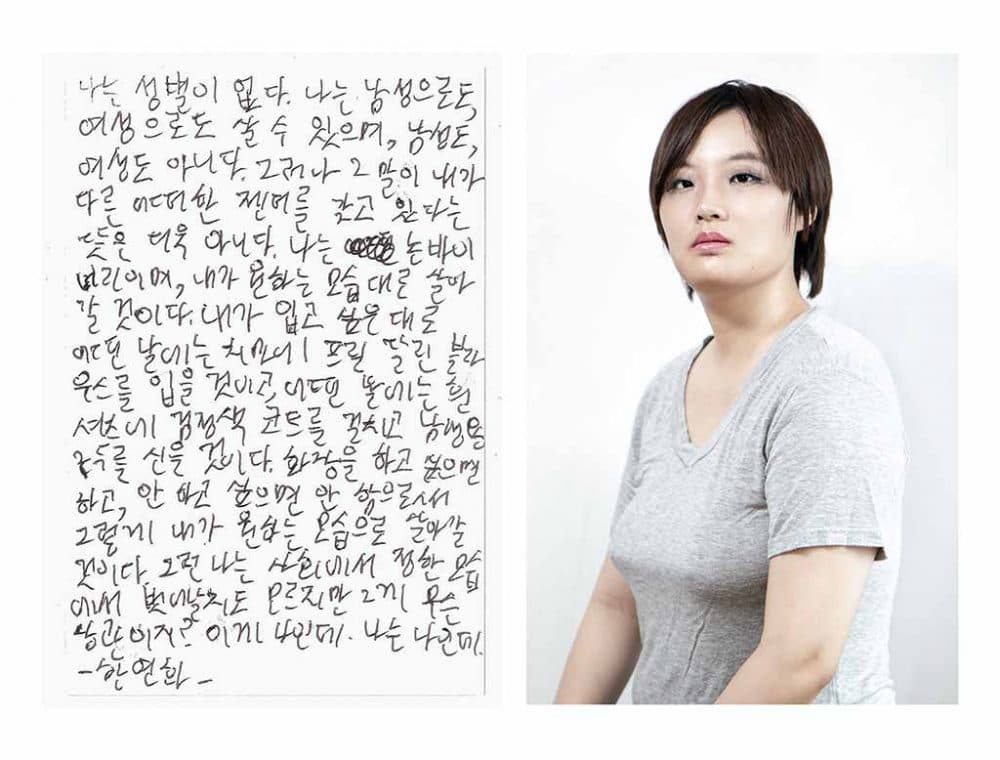 나는 성별이 없다. 나는 남성으로도,
여성으로도 살 수 있으며, 남성도,
여성도 아니다. 그러나 그 말이 내가
다른 어떠한 젠더를 갖고 있다는
뜻은 더욱 아니다. 나는 논바이
너리이며, 내가 원하는 모습대로 살아
갈 것이다. 내가 입고 싶은 대로
어떤 날에는 치마에 프릴 달린 블라
우스를 입을 것이고, 어떤 날에는 흰
셔츠에 검정색 코트를 걸치고 남성용
구두를 신을 것이다. 화장을 하고 싶으면
하고, 안 하고 싶으면 안 함으로써
그렇게 내가 원하는 모습으로 살아갈
것이다. 그런 나는 사회에서 정한 모습
에서 벗어날지도 모르지만 그게 무슨
상관이지? 이게 나인데. 나는 나인데.
- 한연화 -